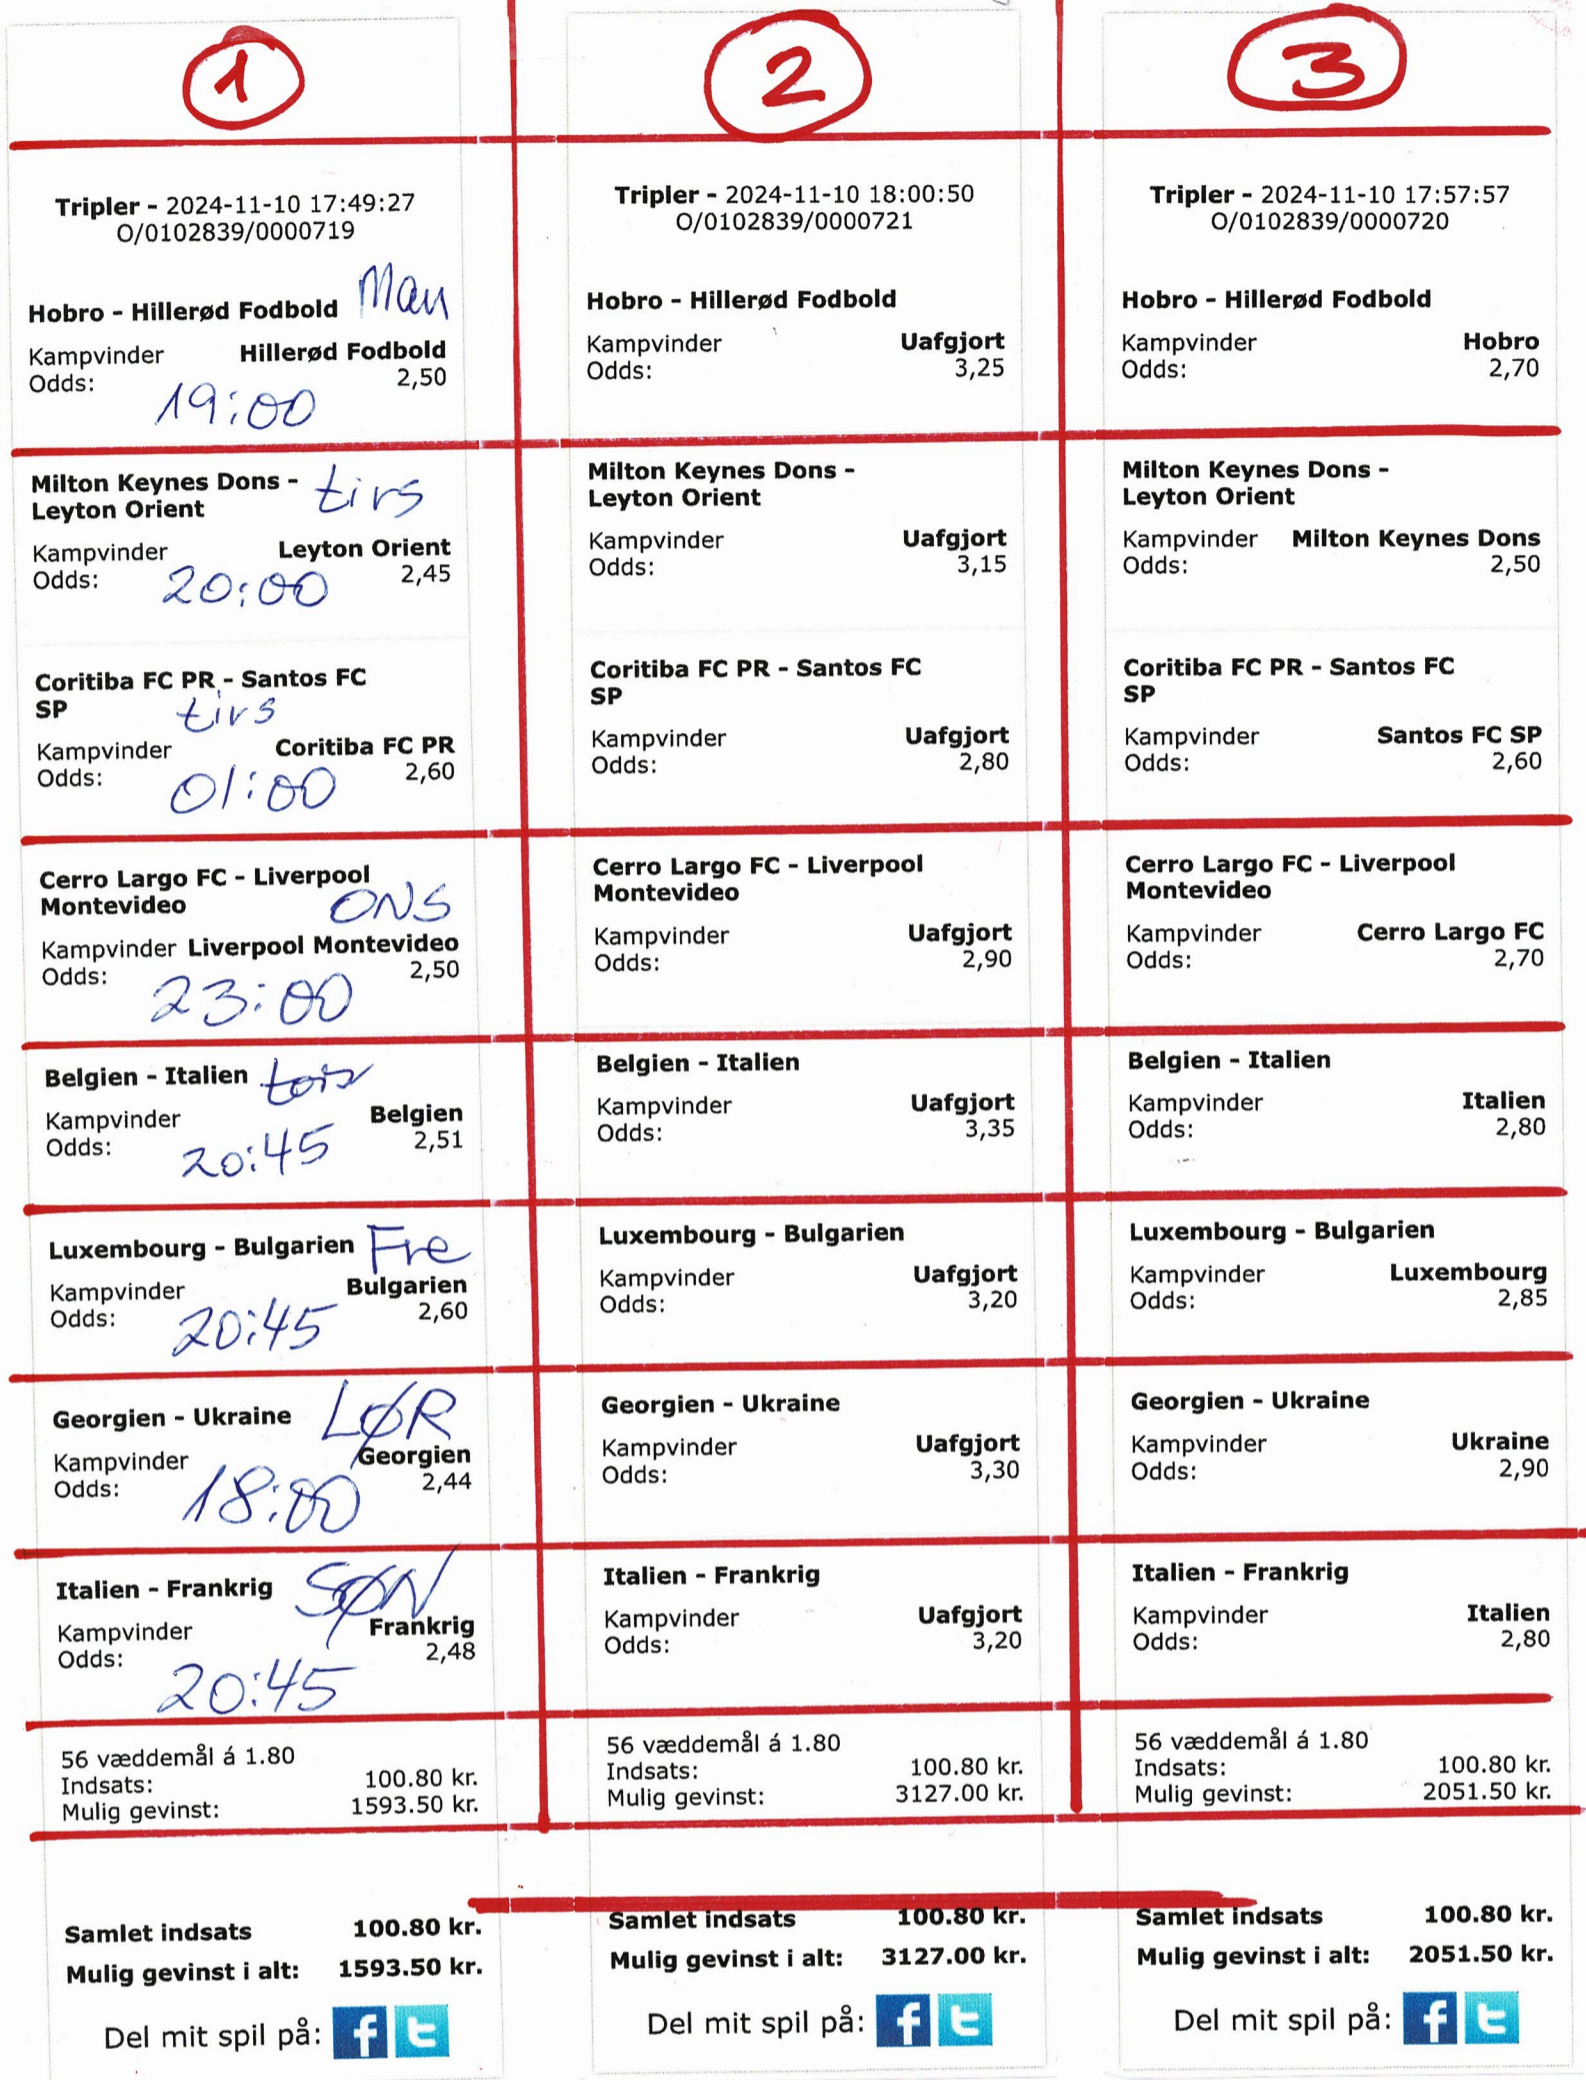 1
Tripler - 2024-11-10 17:49:27
O/0102839/0000719
Hobro - Hillerød Fodbold Man
Kampvinder Hillerød Fodbold
Odds: 2,50
19:00
Milton Keynes Dons - tirs
Leyton Orient
Kampvinder Leyton Orient
Odds: 2,45
20:00
Coritiba FC PR - Santos FC
SP tirs
Kampvinder Coritiba FC PR
Odds: 2,60
01:00
Cerro Largo FC - Liverpool
Montevideo ONS
Kampvinder Liverpool Montevideo
Odds: 2,50
23:00
Belgien - Italien
Kampvinder Belgien
Odds: 2,51
20:45
Luxembourg - Bulgarien Fre
Kampvinder Bulgarien
Odds: 2,60
20:45
Georgien - Ukraine LØR
Kampvinder Georgien
Odds: 2,44
18:00
Italien - Frankrig SØN
Kampvinder Frankrig
Odds: 2,48
20:45
56 væddemål á 1.80
Indsats: 100.80 kr.
Mulig gevinst: 1593.50 kr.
Samlet indsats 100.80 kr.
Mulig gevinst i alt: 1593.50 kr.
Del mit spil på: f t
2
Tripler - 2024-11-10 18:00:50
O/0102839/0000721
Hobro - Hillerød Fodbold
Kampvinder Uafgjort
Odds: 3,25
Milton Keynes Dons -
Leyton Orient
Kampvinder Uafgjort
Odds: 3,15
Coritiba FC PR - Santos FC
SP
Kampvinder Uafgjort
Odds: 2,80
Cerro Largo FC - Liverpool
Montevideo
Kampvinder Uafgjort
Odds: 2,90
Belgien - Italien
Kampvinder Uafgjort
Odds: 3,35
Luxembourg - Bulgarien
Kampvinder Uafgjort
Odds: 3,20
Georgien - Ukraine
Kampvinder Uafgjort
Odds: 3,30
Italien - Frankrig
Kampvinder Uafgjort
Odds: 3,20
56 væddemål á 1.80
Indsats: 100.80 kr.
Mulig gevinst: 3127.00 kr.
Samlet indsats 100.80 kr.
Mulig gevinst i alt: 3127.00 kr.
Del mit spil på: f t
3
Tripler - 2024-11-10 17:57:57
O/0102839/0000720
Hobro - Hillerød Fodbold
Kampvinder Hobro
Odds: 2,70
Milton Keynes Dons -
Leyton Orient
Kampvinder Milton Keynes Dons
Odds: 2,50
Coritiba FC PR - Santos FC
SP
Kampvinder Santos FC SP
Odds: 2,60
Cerro Largo FC - Liverpool
Montevideo
Kampvinder Cerro Largo FC
Odds: 2,70
Belgien - Italien
Kampvinder Italien
Odds: 2,80
Luxembourg - Bulgarien
Kampvinder Luxembourg
Odds: 2,85
Georgien - Ukraine
Kampvinder Ukraine
Odds: 2,90
Italien - Frankrig
Kampvinder Italien
Odds: 2,80
56 væddemål á 1.80
Indsats: 100.80 kr.
Mulig gevinst: 2051.50 kr.
Samlet indsats 100.80 kr.
Mulig gevinst i alt: 2051.50 kr.
Del mit spil på: f t